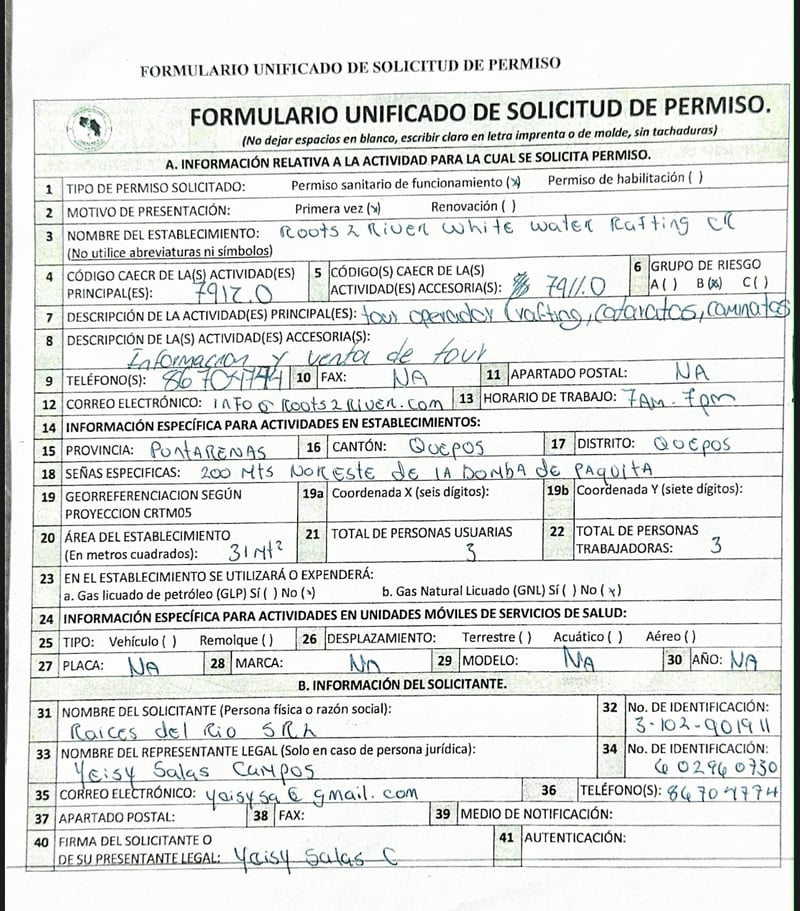 FORMULARIO UNIFICADO DE SOLICITUD DE PERMISO
FORMULARIO UNIFICADO DE SOLICITUD DE PERMISO.
(No dejar espacios en blanco, escribir claro en letra imprenta o de molde, sin tachaduras)
A. INFORMACIÓN RELATIVA A LA ACTIVIDAD PARA LA CUAL SE SOLICITA PERMISO.
1 TIPO DE PERMISO SOLICITADO: Permiso sanitario de funcionamiento (x) Permiso de habilitación ( )
2 MOTIVO DE PRESENTACIÓN: Primera vez (x) Renovación ( )
3 NOMBRE DEL ESTABLECIMIENTO: Roots 2 River White water Rafting CR
(No utilice abreviaturas ni símbolos)
4 CÓDIGO CAECR DE LA(S) ACTIVIDAD(ES) PRINCIPAL(ES): 7912.0
5 CÓDIGO(S) CAECR DE LA(S) ACTIVIDAD(ES) ACCESORIA(S): 7911.0
6 GRUPO DE RIESGO
A ( ) B (x) C ( )
7 DESCRIPCIÓN DE LA ACTIVIDAD(ES) PRINCIPAL(ES): tour operador (rafting, cataratas, caminatas
8 DESCRIPCIÓN DE LA(S) ACTIVIDAD(ES) ACCESORIA(S):
Informacion y venta de tour
9 TELÉFONO(S): 10 FAX: NA 11 APARTADO POSTAL: NA
12 CORREO ELECTRÓNICO: INFO @ Roots2River.com 13 HORARIO DE TRABAJO: 7AM - 7pm
14 INFORMACIÓN ESPECÍFICA PARA ACTIVIDADES EN ESTABLECIMIENTOS:
15 PROVINCIA: PUNTARENAS 16 CANTÓN: QUEPOS 17 DISTRITO: QUEPOS
18 SEÑAS ESPECIFICAS: 200 Mts NORESTE de LA BOMBA de PAQUITA
19 GEORREFERENCIACION SEGÚN PROYECCION CRTM05
19a Coordenada X (seis dígitos): 19b Coordenada Y (siete dígitos):
20 ÁREA DEL ESTABLECIMIENTO
(En metros cuadrados): 31 Mt²
21 TOTAL DE PERSONAS USUARIAS
3
22 TOTAL DE PERSONAS
TRABAJADORAS: 3
23 EN EL ESTABLECIMIENTO SE UTILIZARÁ O EXPENDERÁ:
a. Gas licuado de petróleo (GLP) Sí ( ) No (x) b. Gas Natural Licuado (GNL) Sí ( ) No (x)
24 INFORMACIÓN ESPECÍFICA PARA ACTIVIDADES EN UNIDADES MÓVILES DE SERVICIOS DE SALUD:
25 TIPO: Vehículo ( ) Remolque ( ) 26 DESPLAZAMIENTO: Terrestre ( ) Acuático ( ) Aéreo ( )
27 PLACA: NA 28 MARCA: NA 29 MODELO: NA 30 AÑO: NA
B. INFORMACIÓN DEL SOLICITANTE.
31 NOMBRE DEL SOLICITANTE (Persona física o razón social):
Raices del Rio SRL
32 No. DE IDENTIFICACIÓN:
3-102-901911
33 NOMBRE DEL REPRESENTANTE LEGAL (Solo en caso de persona jurídica):
Yeisy Salas Campos
34 No. DE IDENTIFICACIÓN:
6 0296 0730
35 CORREO ELECTRÓNICO: yaisysa@gmail.com 36 TELÉFONO(S): 8670 4774
37 APARTADO POSTAL: 38 FAX: 39 MEDIO DE NOTIFICACIÓN:
40 FIRMA DEL SOLICITANTE O
DE SU PRESENTANTE LEGAL: Yeisy Salas C
41 AUTENTICACIÓN: